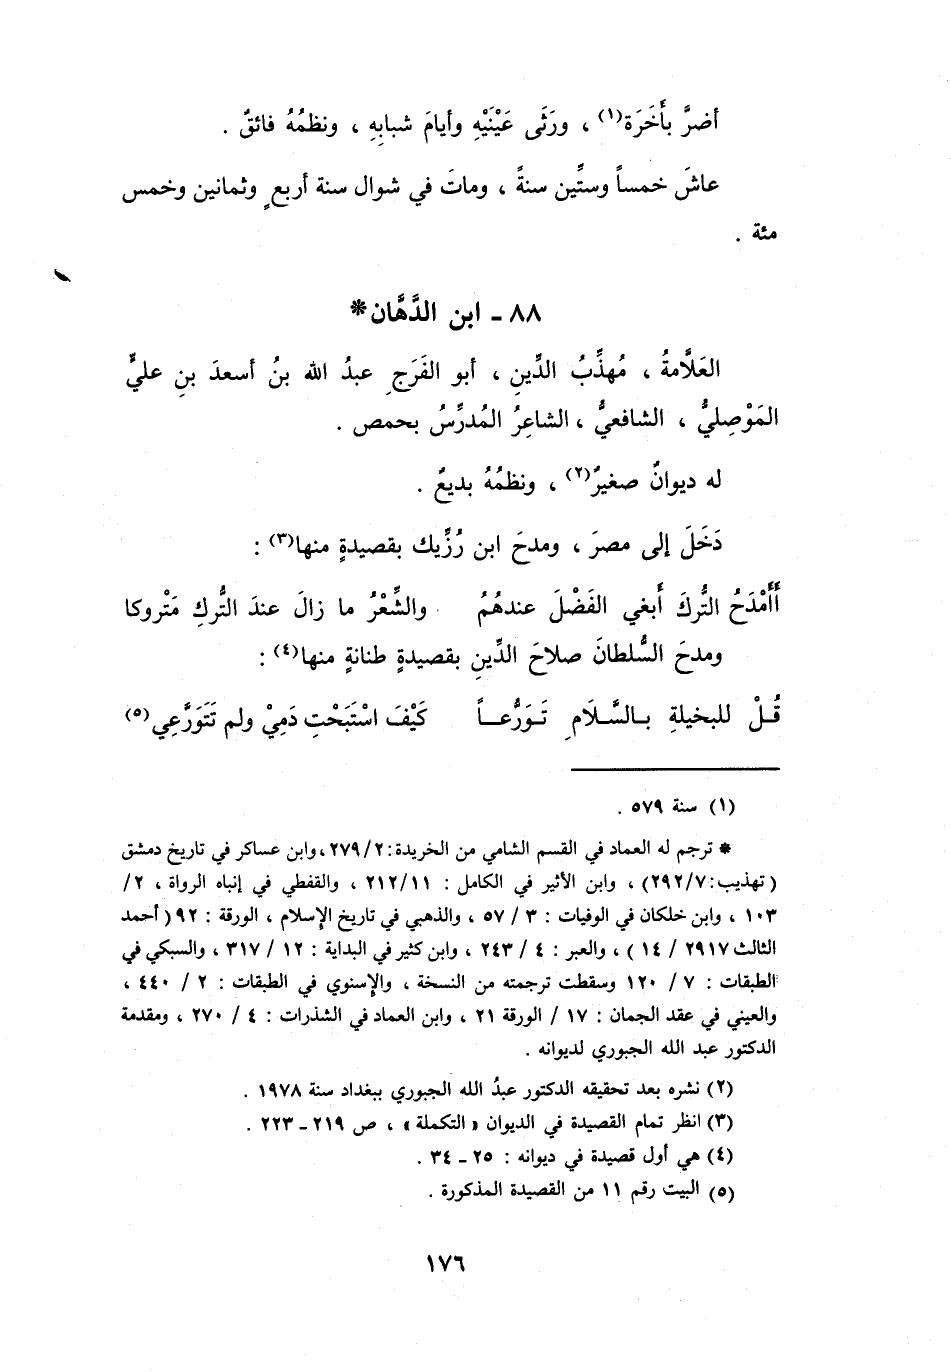 أضرَّ بأَخَرَة(١) ، ورَثَى عَيْنَيْهِ وأيامَ شبابِهِ ، ونظمُهُ فائقٌ .
عاشَ خمساً وستِّين سنةً ، وماتَ في شوال سنة أربعٍ وثمانين وخمس
مئة .
٨٨ ـ ابن الدَّهَّان*
العَلَّامةُ ، مُهذِّبُ الدِّينِ ، أبو الفَرَجِ عبدُ الله بنُ أسعدَ بنِ عليٍّ
المَوْصِليُّ ، الشافعيُّ ، الشاعِرُ المُدرِّسُ بحمص .
له ديوانٌ صغيرٌ(٢) ، ونظمُهُ بديعٌ .
دَخَلَ إلى مصرَ ، ومدحَ ابن رُزِّيك بقصيدةٍ منها(٣) :
أَأَمْدَحُ التُّركَ أَبغي الفَضْلَ عندهُمُ والشِّعْرُ ما زالَ عندَ التُّركِ مَتْروكا
ومدحَ السُّلطانَ صلاحَ الدِّينِ بقصيدةٍ طنانةٍ منها(٤) :
قُـلْ للبخيلةِ بـالسَّـلَامِ تَـوَرُّعـاً كَيْفَ اسْتَبَحْتِ دَمِيْ ولم تَتَوَرَّعِي(٥)
(١) سنة ٥٧٩ .
* ترجم له العماد في القسم الشامي من الخريدة: ٢/ ٢٧٩، وابن عساكر في تاريخ دمشق
(تهذيب: ٧/ ٢٩٢) ، وابن الأثير في الكامل : ١١/ ٢١٢ ، والقفطي في إنباه الرواة ، ٢/
١٠٣ ، وابن خلكان في الوفيات : ٣ / ٥٧ ، والذهبي في تاريخ الإسلام ، الورقة : ٩٢ (أحمد
الثالث ٢٩١٧ / ١٤) ، والعبر : ٤ / ٢٤٣ ، وابن كثير في البداية : ١٢ / ٣١٧ ، والسبكي في
الطبقات : ٧ / ١٢٠ وسقطت ترجمته من النسخة ، والإسنوي في الطبقات : ٢ / ٤٤٠ ،
والعيني في عقد الجمان : ١٧ / الورقة ٢١ ، وابن العماد في الشذرات : ٤ / ٢٧٠ ، ومقدمة
الدكتور عبد الله الجبوري لديوانه .
(٢) نشره بعد تحقيقه الدكتور عبدُ الله الجبوري ببغداد سنة ١٩٧٨ .
(٣) انظر تمام القصيدة في الديوان « التكملة » ، ص ٢١٩ ـ ٢٢٣ .
(٤) هي أول قصيدة في ديوانه : ٢٥ ـ ٣٤ .
(٥) البيت رقم ١١ من القصيدة المذكورة .
١٧٦